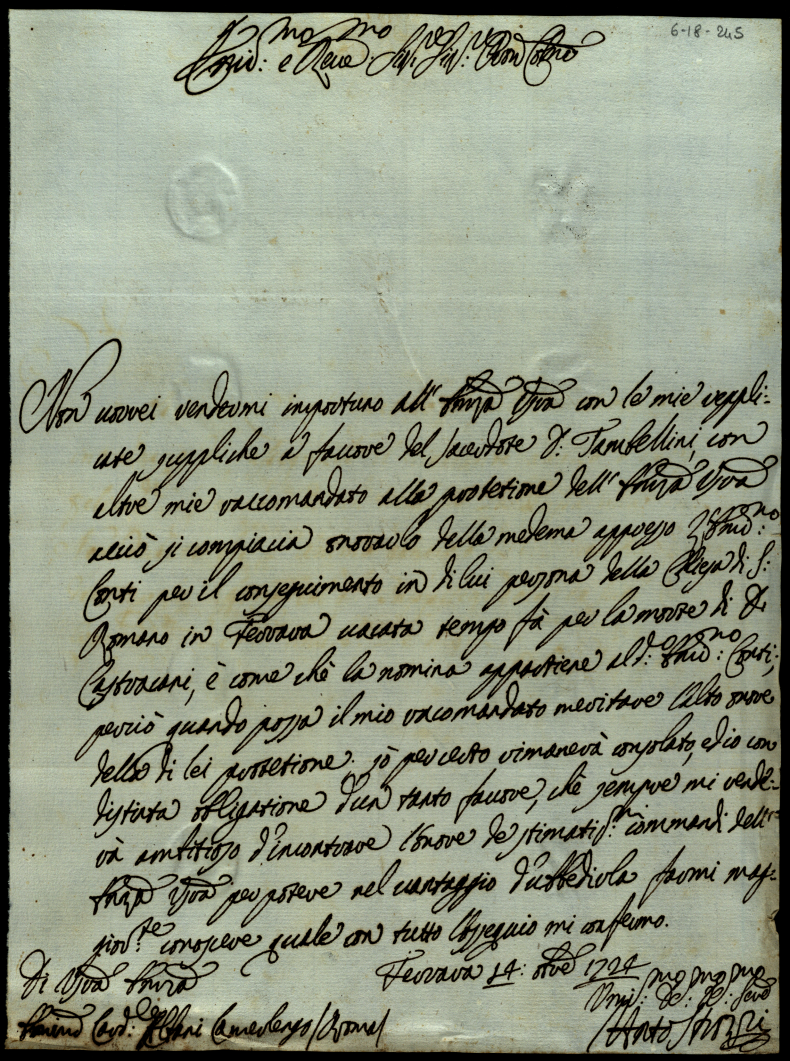 6-18-245
Emin:mo e Reve:mo Sig:re Sig:re Pron Colmo
Non uorrei rendermi importuno all' Emza Vra con le mie reppli-
cate suppliche à fauore del Sacerdote D: Tambellini, con
altre mie raccomandato alla protetione dell' Emza Vra
acciò si compiacia onorarlo della medema appresso l'Emin:mo
Conti per il conseguimento in di lui persona della Chiesa di S:
Romano in Ferrara uacata tempo fà per la morte di D:
Castracani, è come chè la nomina appartiene al d: Emin:mo Conti;
perciò quando possa il mio racomandato meritare l'alto onore
della di lei protetione. jò per certo rimanerà consolato, ed io con
distinta obligatione d'un tanto fauore, chè sempre mi rende-
rà ambitioso d'incontrare l'onore de stimatis:mi commandi dell'
Emza Vra per potere nel uantaggio d'ubbedirla farmi mag-
gior:te conoscere quale con tutto l'ossequio mi confermo.
Di Vra Emza Ferrara 14: Ottbre 1724
Umil:mo De:mo Ob:mo Serre
Card:le Albani Camerlengo /Roma/ Anto Strozzi